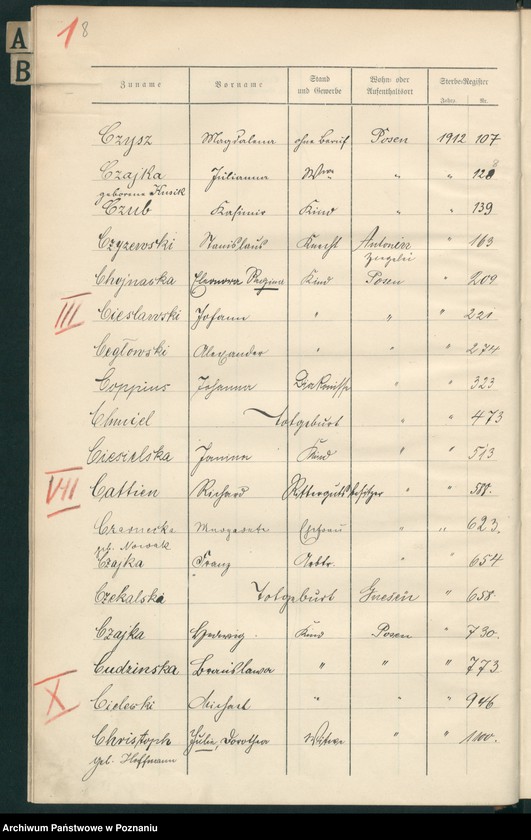 A
B
18
Zuname Vorname Stand und Gewerbe Wohn- oder Aufenthaltsort Sterbe-Register
Jahr Nr.
Czysz Magdalena ohne Beruf Posen 1912 107
Czajka Julianna Wwe " " 128
geborene Kusik
Czub Kasimir Kind " " 139
Czyzewski Stanislaus Knecht Antonin " 163
Ziegelei
Chojnacka Eleonora Regina Kind Posen " 209
III Cieslawski Johann " " " 221
Cegłowski Alexander " " " 274
Coppius Johanna Diakonisse " " 323
Chmiel Totgeburt " " 473
Ciesielska Janina Kind " " 513
VII Cattien Richard Rittergutsbesitzer " "
Czarnecka Margarete Ehefrau " " 623.
geb. Nowak
Czajka Franz Arbtr. " " 654
Czekalska Totgeburt Gnesen " 658
Czajka Hedwig Kind Posen " 730.
Cudzinska Bronislawa " " " 773
X Cielewski Michael " " " 946
Christoph Julie, Dorothea Witwe " " 1100.
geb. Hoffmann
Archiwum Państwowe w Poznaniu
szukajwarchiwach.pl